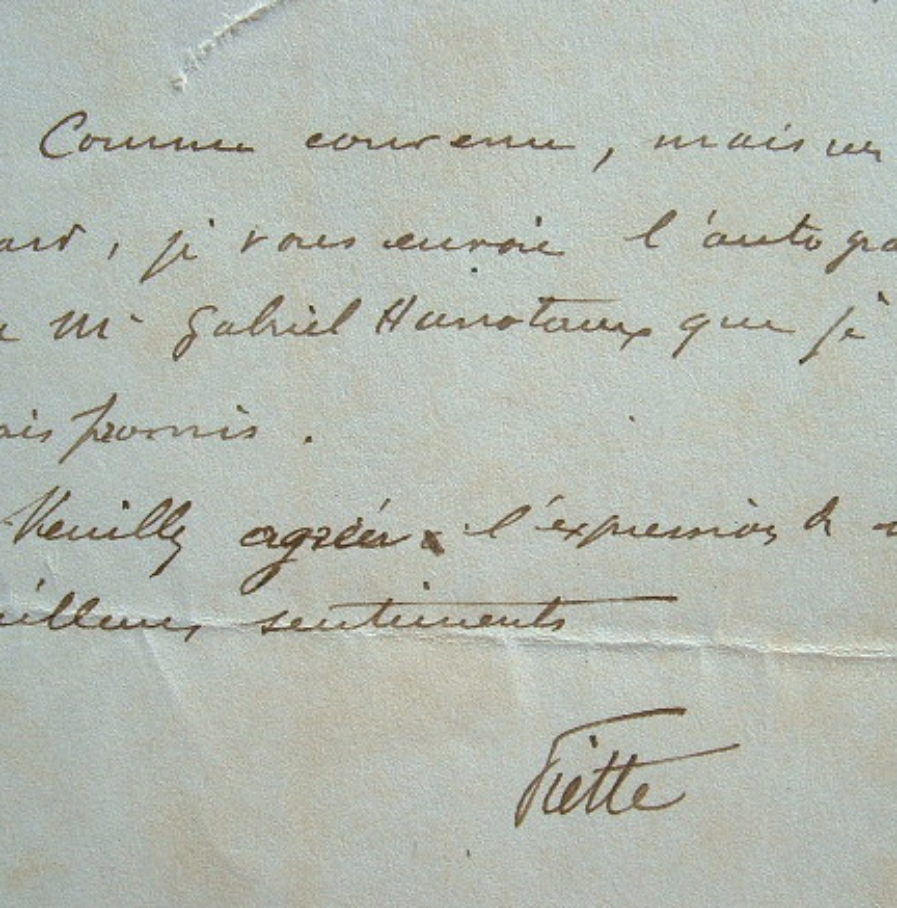 Comme convenu, mais un
ard, je vous envoie l'autogra
M^r Gabriel Hanotaux que je
ais promis.
Veuillez agréer l'expression de
eilleurs sentiments